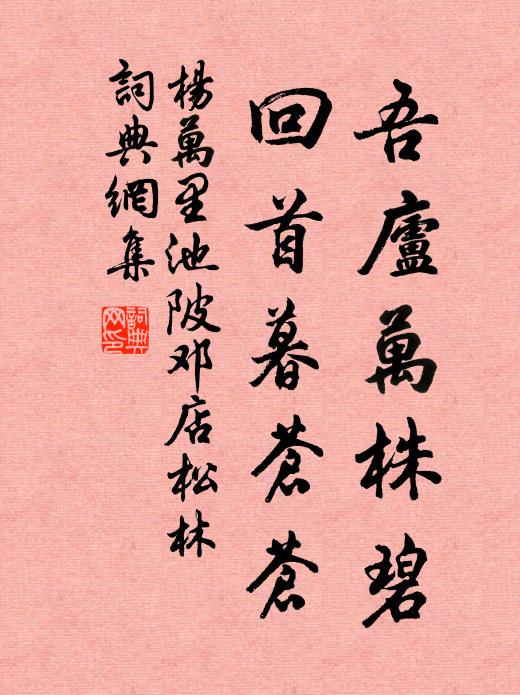 吾廬萬株碧
回首暮蒼蒼
楊萬里池陂邓店松林
詞典網集
詞典網印